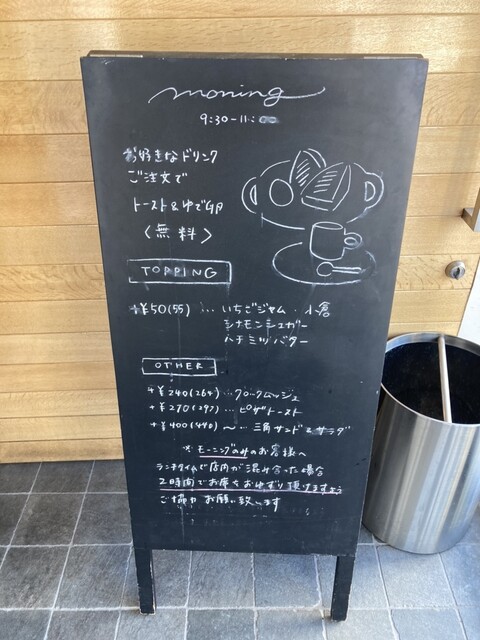 moning
9:30-11:00
お好きなドリンク
ご注文で
トースト&ゆで卵
〈無料〉
TOPPING
+¥50(55)…いちごジャム・小倉
シナモンシュガー
ハチミツバター
OTHER
+¥240(264)…クロークムッシュ
+¥270(297)…ピザトースト
+¥400(440)〜…三角サンド&サラダ
※モーニングのみのお客様へ
ランチタイムで店内が混み合った場合
2時間でお席をおゆずり頂けますよう
ご協力お願い致します